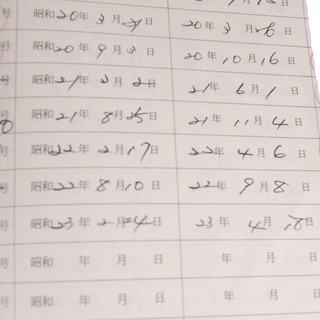 号 昭和20年3月21日 20年3月26日
号 昭和20年9月3日 20年10月16日
号 昭和21年2月2日 21年6月1日
号 昭和21年8月25日 21年11月4日
号 昭和22年2月17日 22年4月6日
号 昭和22年8月10日 22年9月8日
号 昭和23年2月24日 23年4月18日
号 昭和 年 月 日 年 月 日
号 昭和 年 月 日 年 月 日